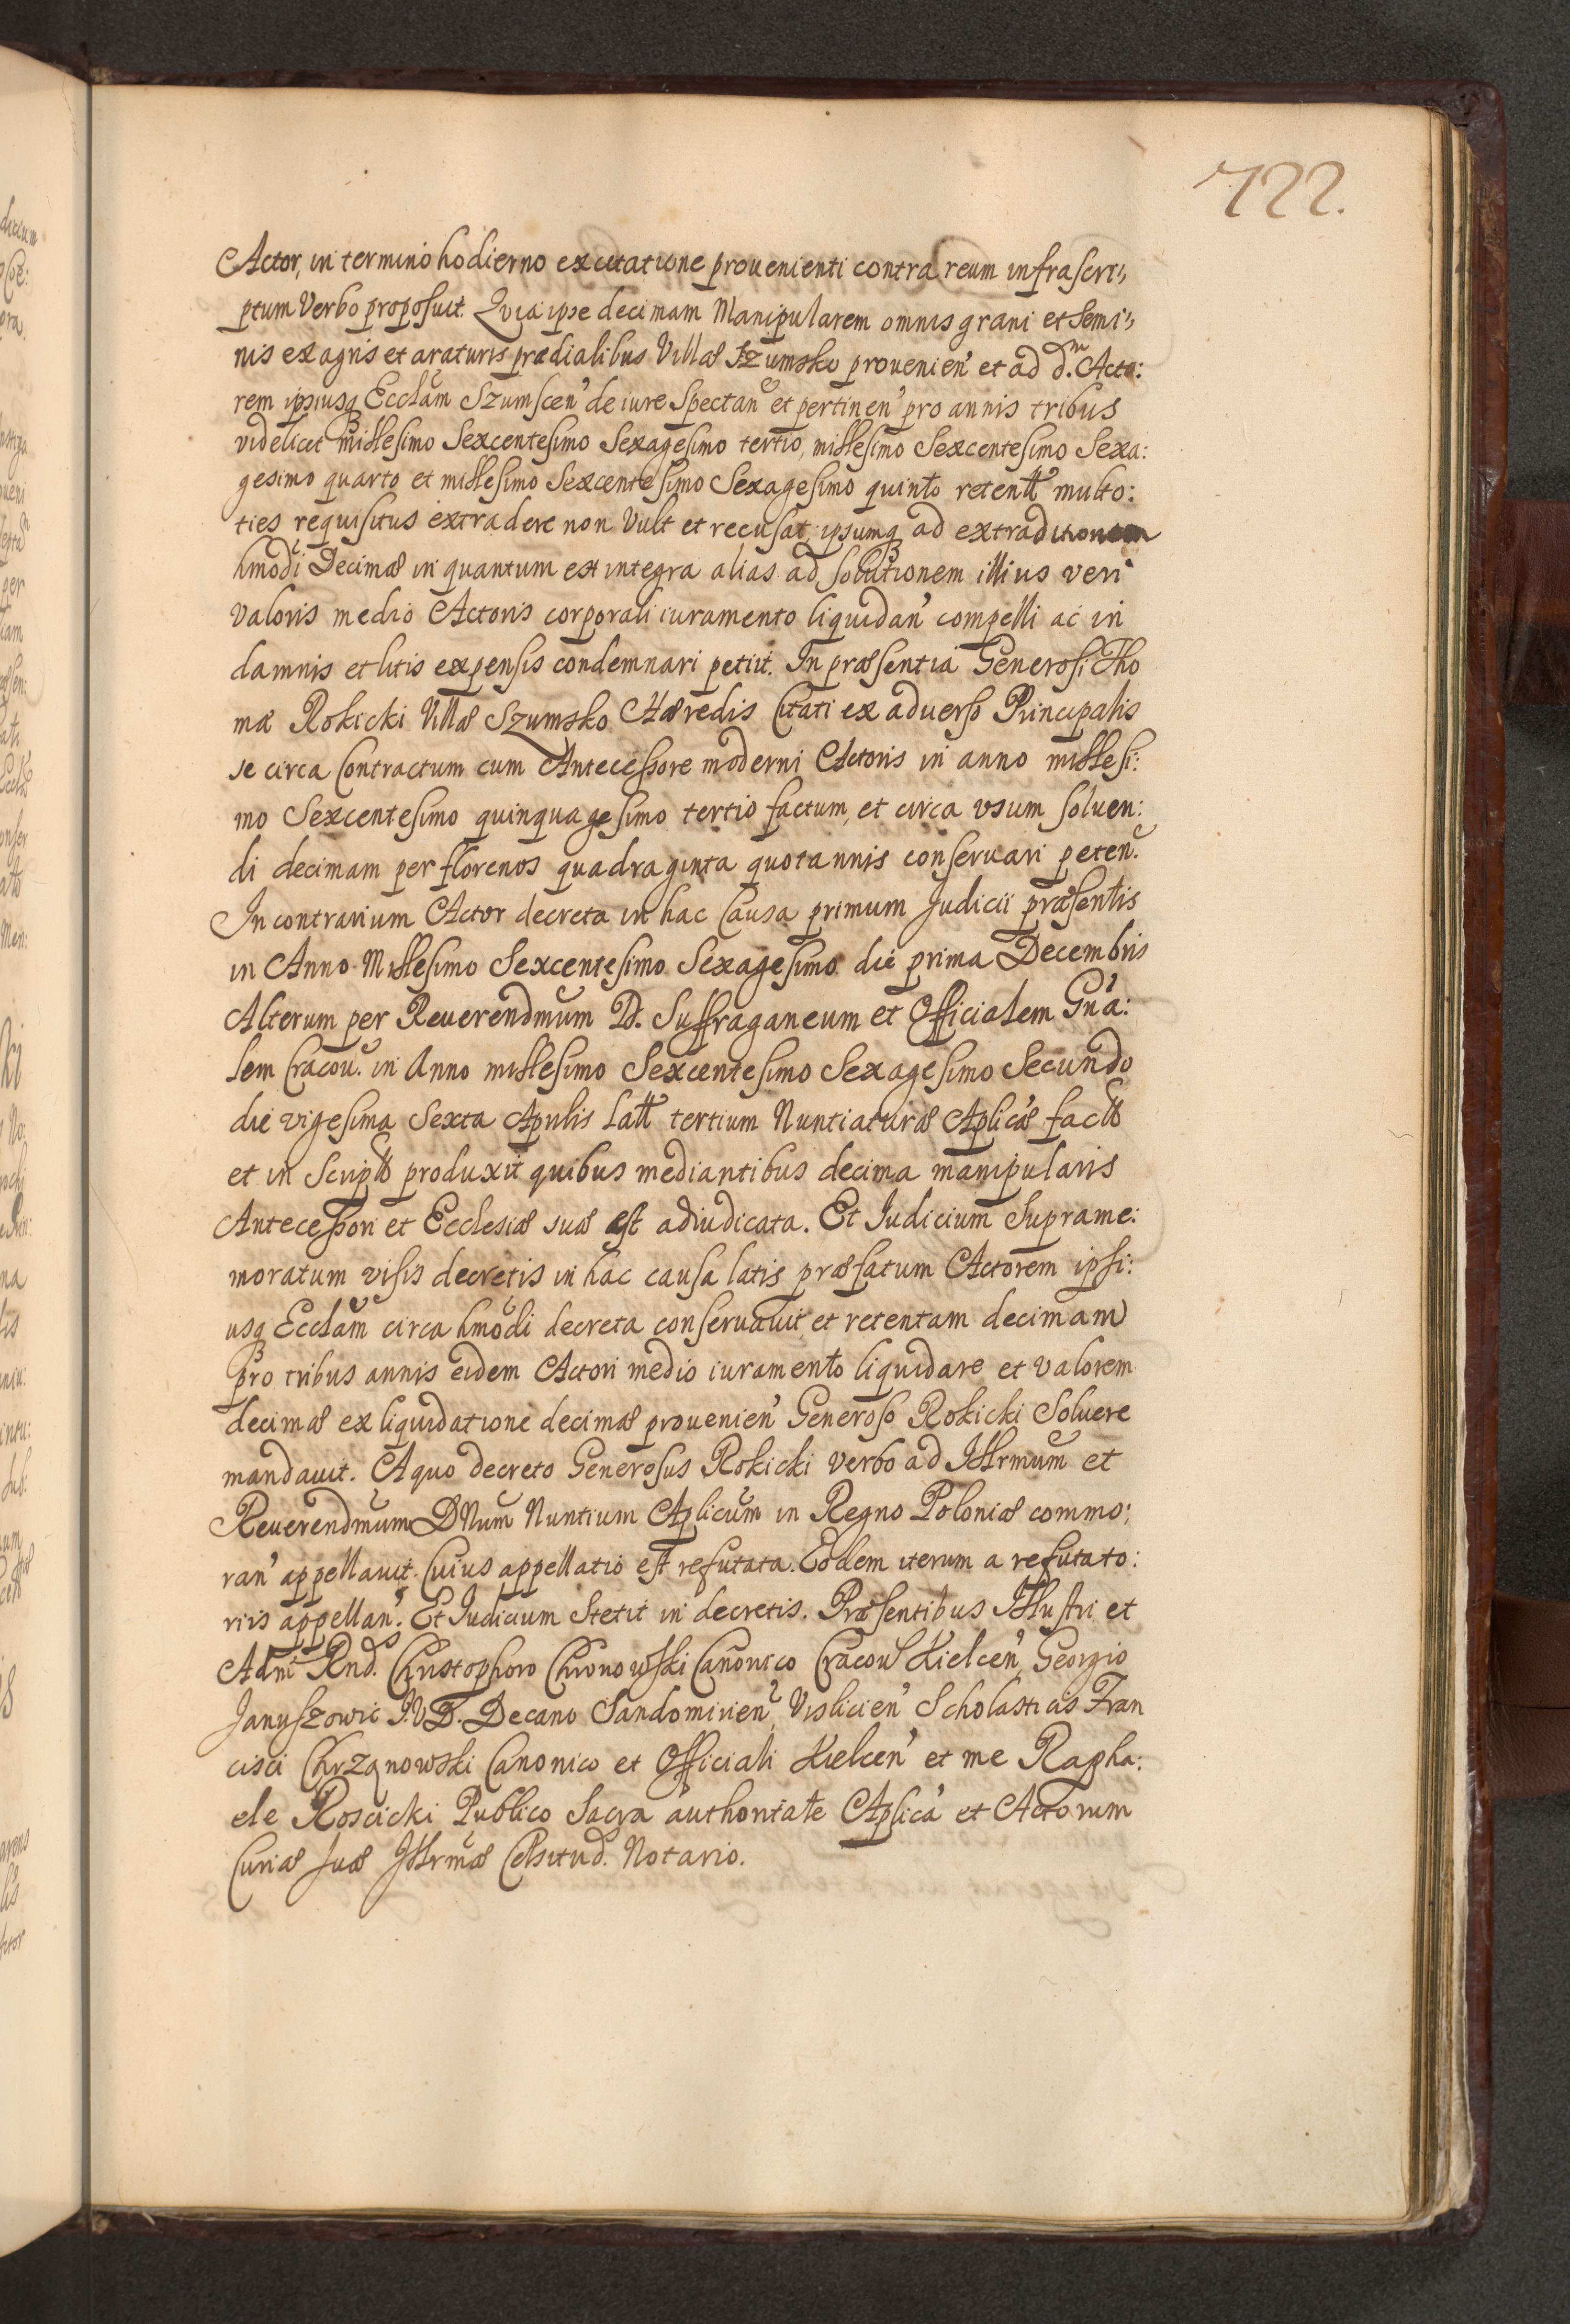 722.
Actor, in termino hodierno ex citatione prouenienti contra reum infrascri,,
ptum Verbo proposuit. Quia ipse decimam Manipularem omnis grani et Semi,,
nis ex agris et araturis prædialibus Villæ Szumsko prouenien' et ad d.m Acto:
rem ipsiusq Ecclam Szumscen' de iure Spectan' et pertinen' pro annis tribus
videlicet millesimo Sexcentesimo Sexagesimo tertio, millesimo Sexcentesimo Sexa:
gesimo quarto et millesimo Sexcentesimo Sexagesimo quinto retent multo:
ties requisitus extradere non Vult et recusat, ipsumq ad extraditionem
hmodi Decimæ in quantum est integra alias ad solutionem illius veri
Valoris medio Actoris corporali iuramento liquidan' compelli ac in
damnis et litis expensis condemnari petiit. In præsentia Generosi Tho
mæ Rokicki Villæ Szumsko Hæredis Citati ex aduerso Principalis
se circa Contractum cum Antecessore moderni Actoris in anno millesi:
mo Sexcentesimo quinquagesimo tertio factum, et circa vsum soluen:
di decimam per florenos quadraginta quotannis conseruari peten.
In contrarium Actor decreta in hac Causa primum Judicii præsentis
in Anno Millesimo Sexcentesimo Sexagesimo die prima Decembris
Alterum per Reuerendmum D. Suffraganeum et Officialem Gna:
lem Cracou. in Anno millesimo Sexcentesimo Sexagesimo Secundo
die vigesima Sexta Aprilis Latt tertium Nuntiaturæ Aplicæ fact
et in Script produxit quibus mediantibus decima manipularis
Antecessori et Ecclesiæ suæ est adiudicata. Et Iudicium Suprame:
moratum visis decretis in hac causa latis præfatum Actorem ipsi:
usq Ecclam circa hmodi decreta conseruauit et retentam decimam
pro tribus annis eidem Actori medio iuramento liquidare et valorem
decimæ ex liquidatione decimæ prouenien' Generoso Rokicki Soluere
mandauit. A quo decreto Generosus Rokicki verbo ad Illrmum et
Reuerendmum DNum Nuntium Aplicum in Regno Poloniæ commo:
ran' appellauit. Cuius appellatio est refutata. Eodem iterum a refutato:
riis appellan'. Et Iudicium Stetit in decretis. Præsentibus Illustri et
Adm Rnd. Christophoro Chronowski Canonico Cracou Kielcen', Georgio
Januszowic I.V.D. Decano Sandomirien', Vislicien' Scholasticis Fran
cisci Chrzanowski Canonico et Officiali Kielcen' et me Rapha:
ele Roscicki Publico Sacra authoritate Aplica et Actorum
Curiæ suæ Illrmæ Celsitud. Notario.